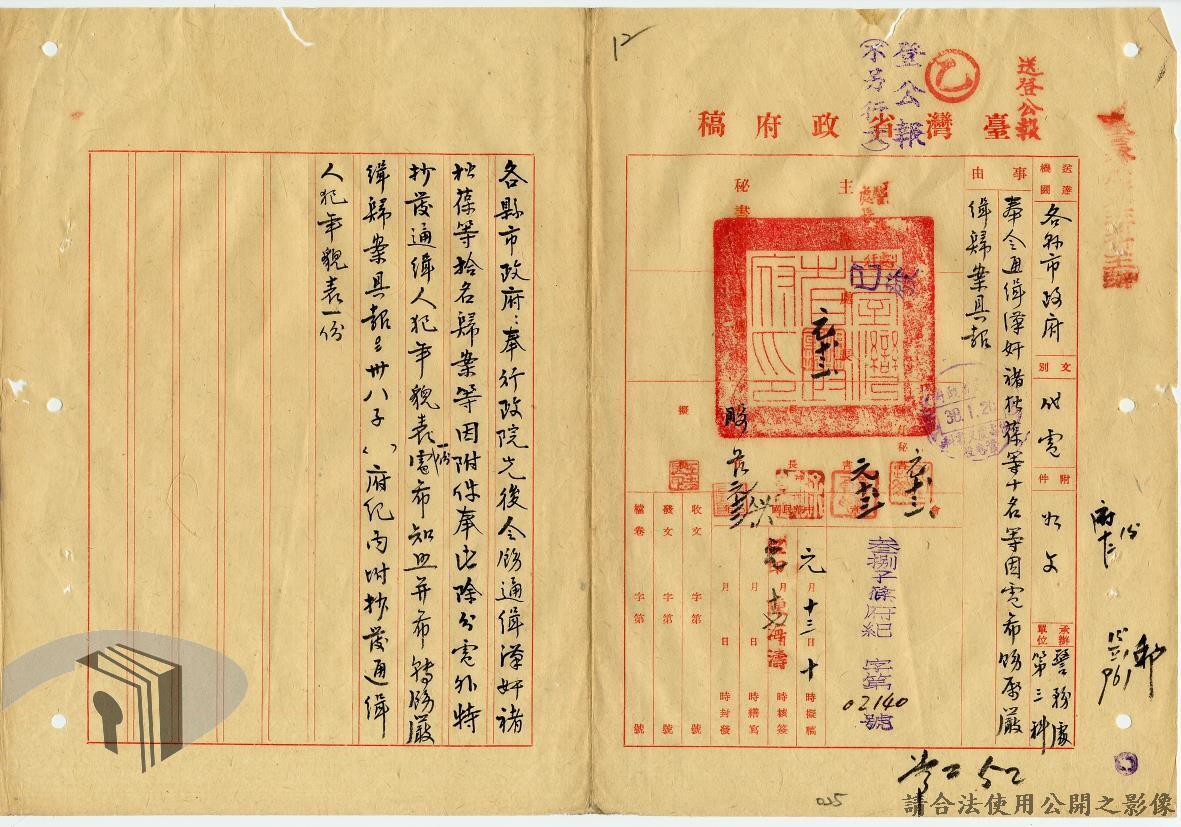 12
送登公報
乙
登公報
(不另行文)
臺灣省政府稿
送達機關
各縣市政府
文別
代電
附件
如文
承辦單位
警務處
第三科
事由
奉令通緝漢奸褚
等十名等因電希飭屬嚴
緝歸案具報
主
秘書
38.1.20
元十三
元十三
元十三
叁捌子 府紀 字第
02140
號
中華民國
年
元月十三日十時擬稿
月 日 時核簽
月 日 時繕寫
月 日 時封發
收文 字第 號
發文 字第 號
檔卷 字第 號
各縣市政府:奉行政院先後令飭通緝漢奸褚
等拾名歸案等因附件奉此除分電外特
抄發通緝人犯年貌表一份電希知照并希轉飭嚴
緝歸案具報
卅八子( )府紀丙附抄發通緝
人犯年貌表一份
025
請合法使用公開之影像